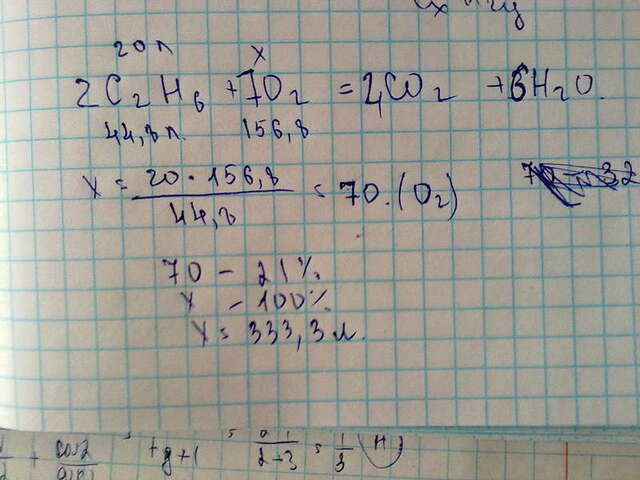 20 л x
2C₂H₆ + 7O₂ = 4CO₂ + 6H₂O.
44,8 л. 156,8
x = 20 · 156,8 / 44,8 = 70. (O₂)
70 – 21%.
x – 100%.
x = 333,3 л.
+ cos2 tg+1 2-3 = 1/3